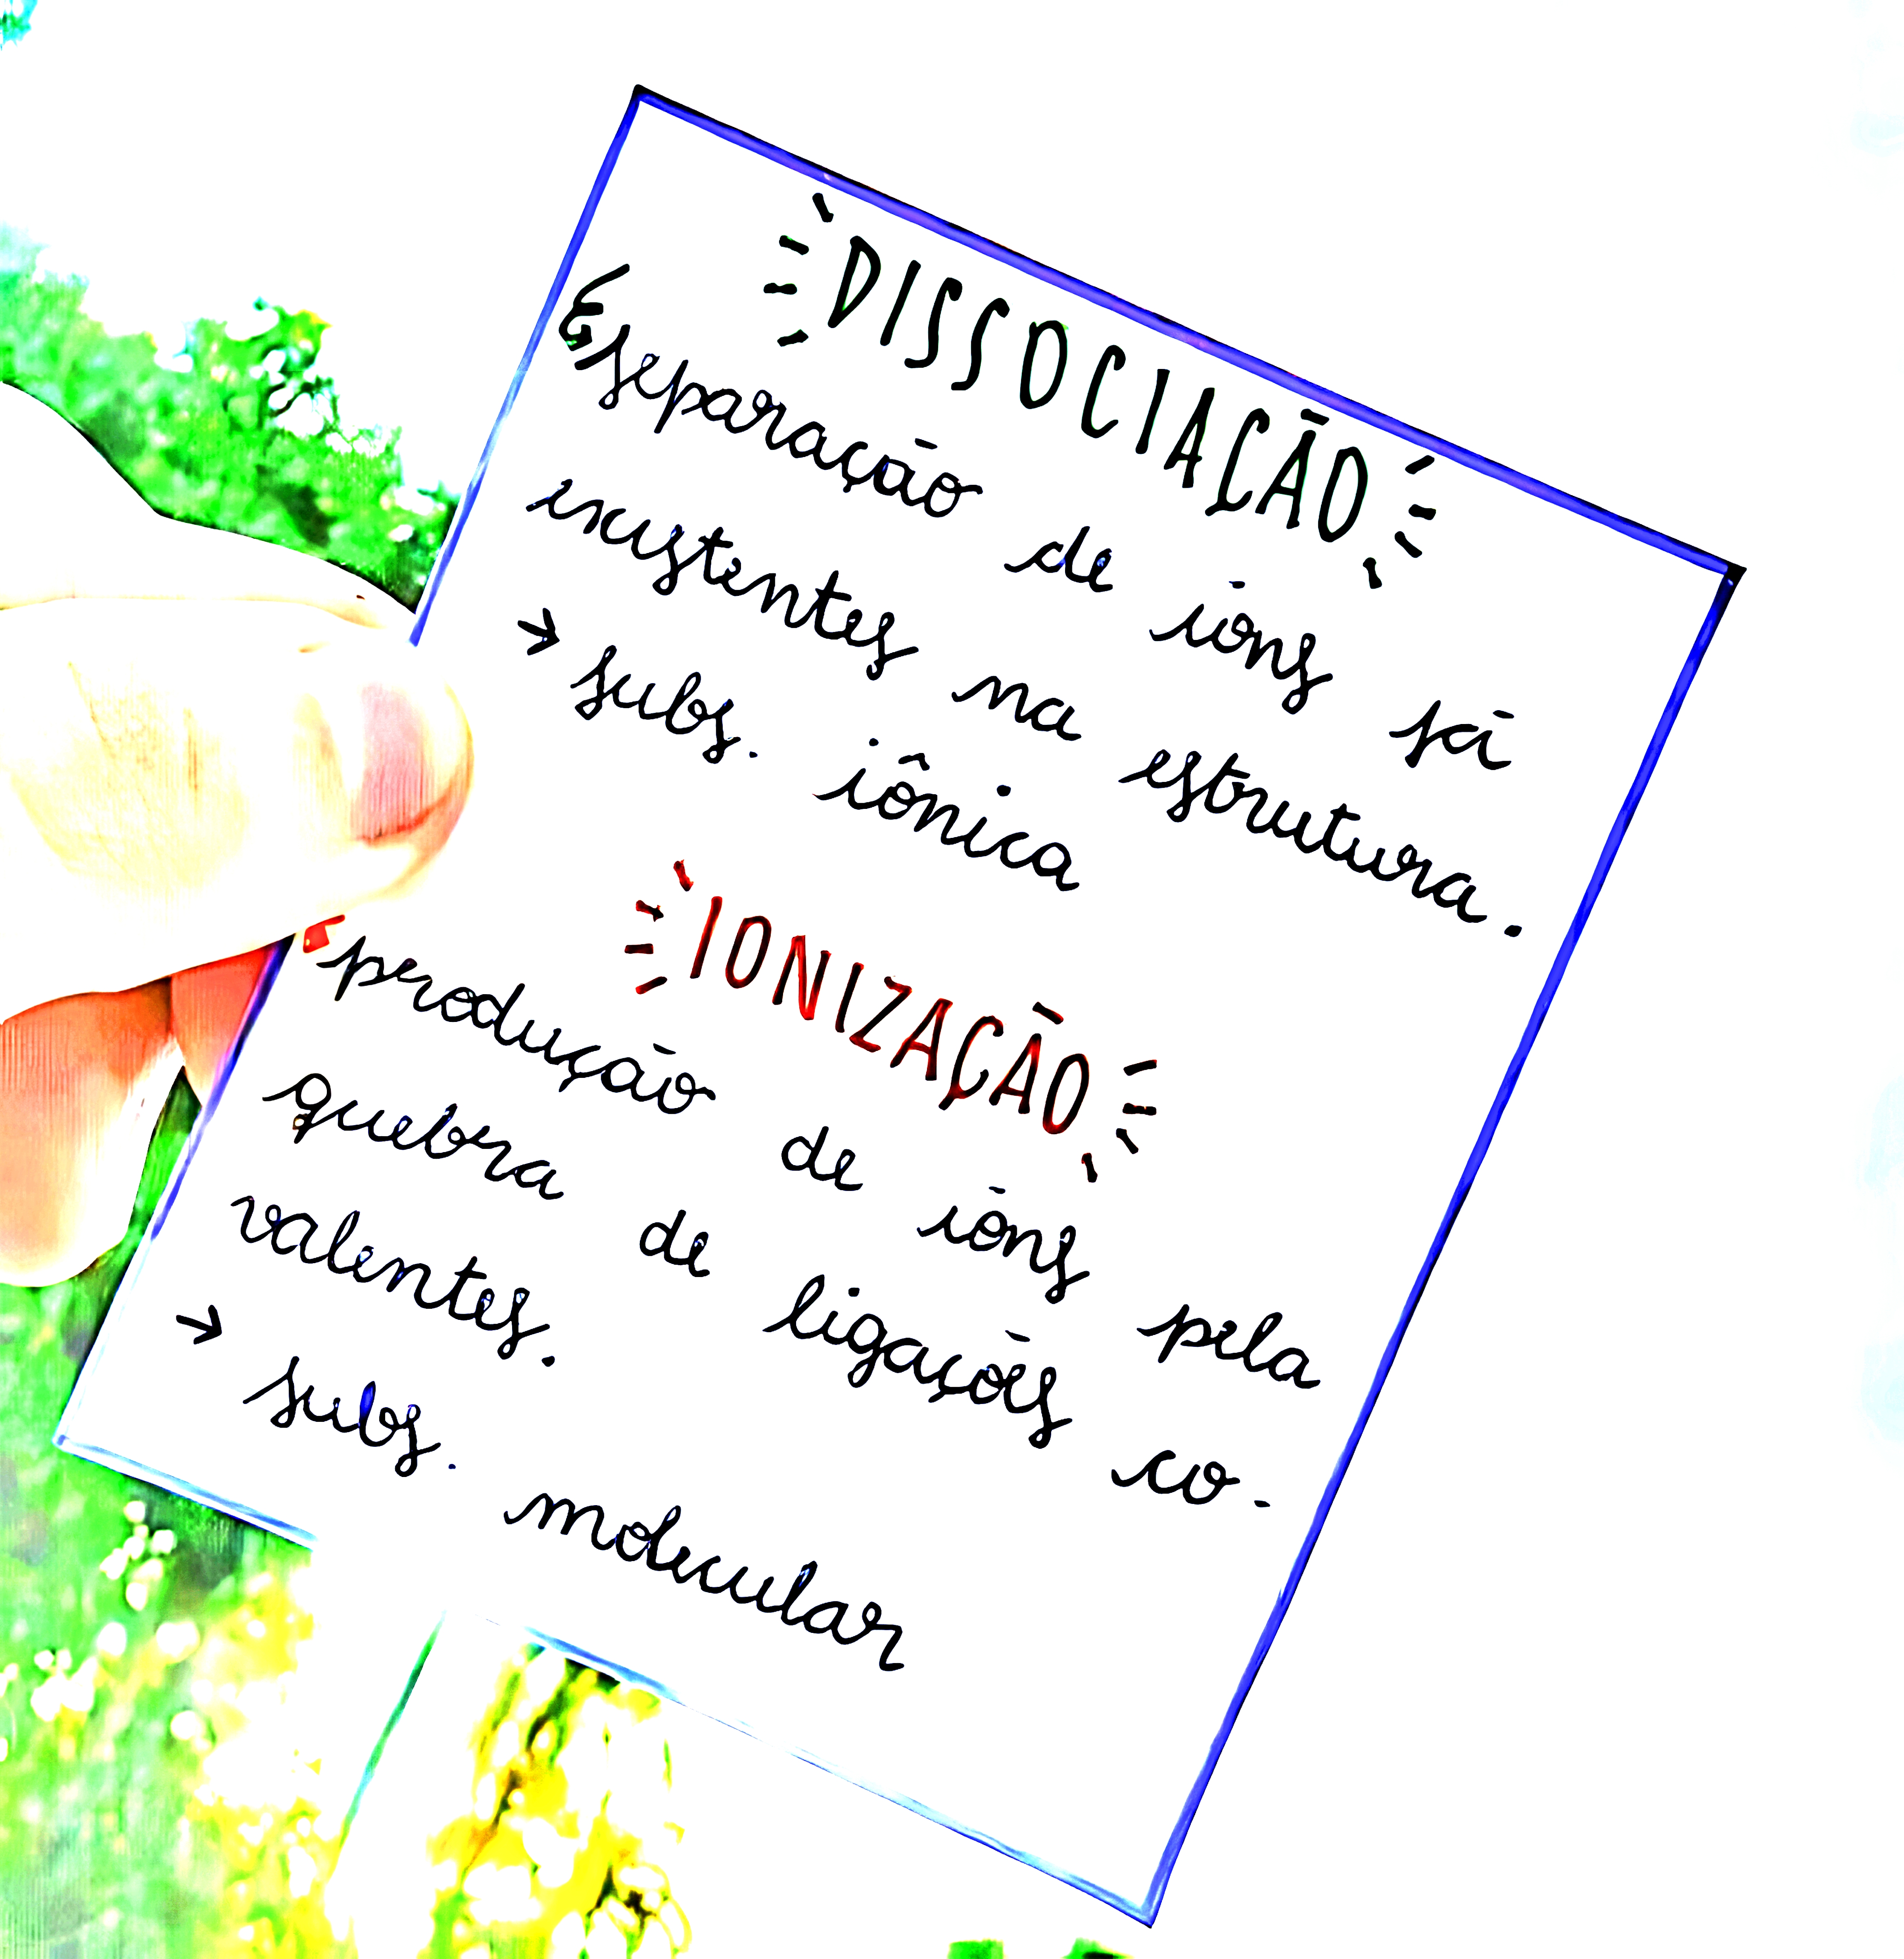 DISSOCIAÇÃO
separação de íons já
existentes na estrutura.
→ subs. iônica
IONIZAÇÃO
produção de íons pela
quebra de ligações co-
valentes.
→ subs. molecular